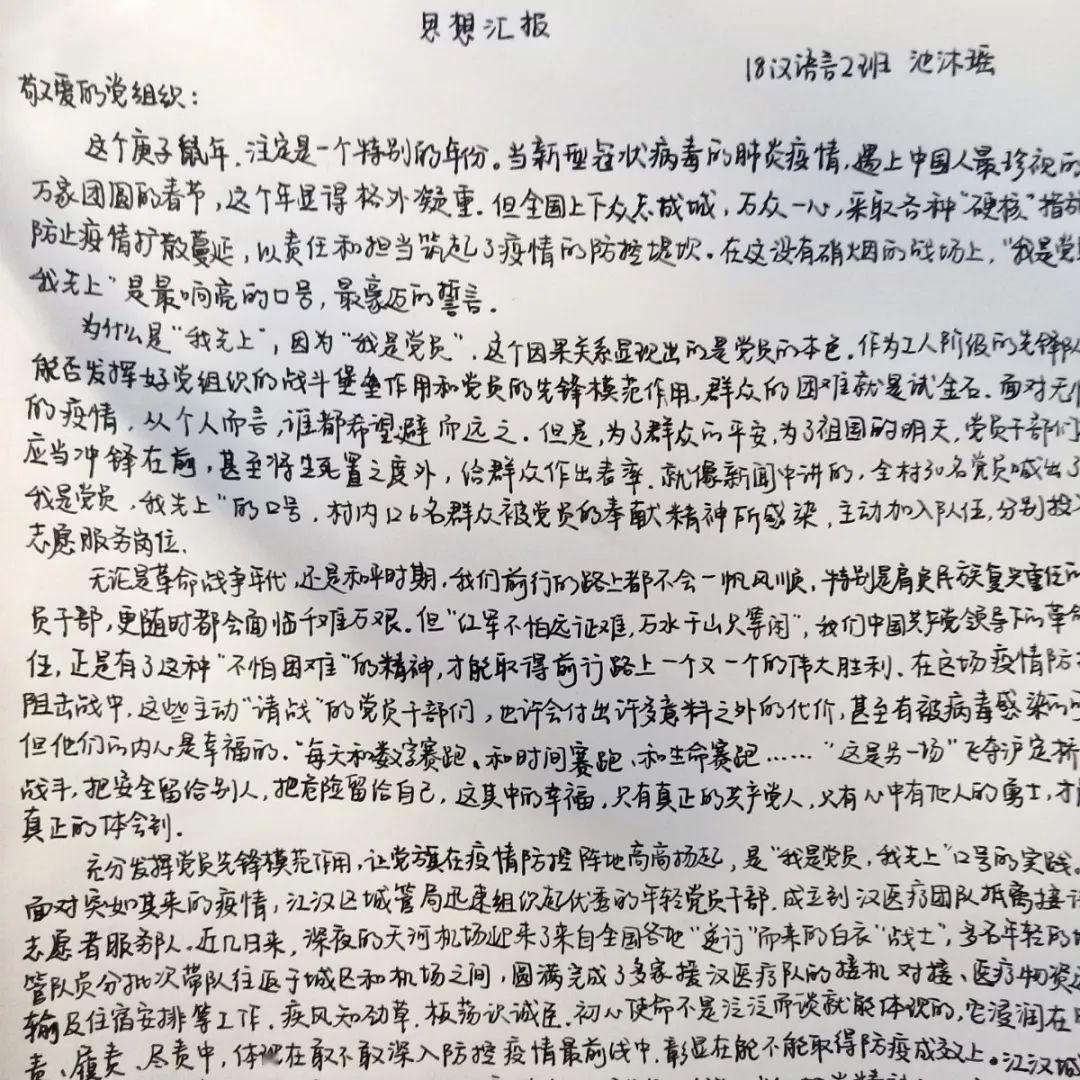 思想汇报
18汉语言2班 池沐瑶
敬爱的党组织：
这个庚子鼠年，注定是一个特别的年份。当新型冠状病毒的肺炎疫情，遇上中国人最珍视的
万家团圆的春节，这个年显得格外凝重。但全国上下众志成城，万众一心，采取各种"硬核"措施
防止疫情扩散蔓延，以责任和担当筑起了疫情的防控堤坎。在这没有硝烟的战场上，"我是党
我先上"是最响亮的口号，最豪迈的誓言。
为什么是"我先上"，因为"我是党员"，这个因果关系显现出的是党员的本色。作为工人阶级的先锋队
能否发挥好党组织的战斗堡垒作用和党员的先锋模范作用，群众的困难就是试金石。面对无
的疫情，从个人而言，谁都希望避而远之。但是，为了群众的平安，为了祖国的明天，党员干部们
应当冲锋在前，甚至将生死置之度外，给群众作出表率。就像新闻中讲的，全村30名党员喊出了
我是党员，我先上"的口号，村内126名群众被党员的奉献精神所感染，主动加入队伍，分别投
志愿服务岗位。
无论是革命战争年代，还是和平时期，我们前行的路上都不会一帆风顺，特别是肩负民族复兴重任的
员干部，更随时都会面临千难万艰。但"红军不怕远征难，万水千山只等闲"，我们中国共产党领导下的革命
任，正是有了这种"不怕困难"的精神，才能取得前行路上一个又一个的伟大胜利。在这场疫情防
阻击战中，这些主动"请战"的党员干部们，也许会付出许多意料之外的代价，甚至有被病毒感染的
但他们的内心是幸福的。"每天和数字赛跑、和时间赛跑、和生命赛跑……"这是另一场"飞夺泸定桥
战斗，把安全留给别人，把危险留给自己，这其中的幸福，只有真正的共产党人，只有心中有他人的勇士，才
真正的体会到。
充分发挥党员先锋模范作用，让党旗在疫情防控阵地高高扬起，是"我是党员，我先上"口号的实践。
面对突如其来的疫情，江汉区城管局迅速组织起优秀的年轻党员干部，成立到汉医疗团队抵离接
志愿者服务队。近几日来，深夜的天河机场迎来了来自全国各地"逆行"而来的白衣"战士"，多名年轻的
管队员分批次带队往返于城区和机场之间，圆满完成了多家援汉医疗队的接机对接、医疗物资
输及住宿安排等工作。疾风知劲草，板荡识诚臣。初心使命不是泛泛而谈就能体现的，它浸润在
责、履责、尽责中，体现在敢不敢深入防控疫情最前线中，彰显在能不能取得防疫成效上。江汉城